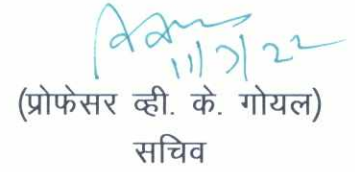 11/7/22
(प्रोफेसर व्ही. के. गोयल)
सचिव